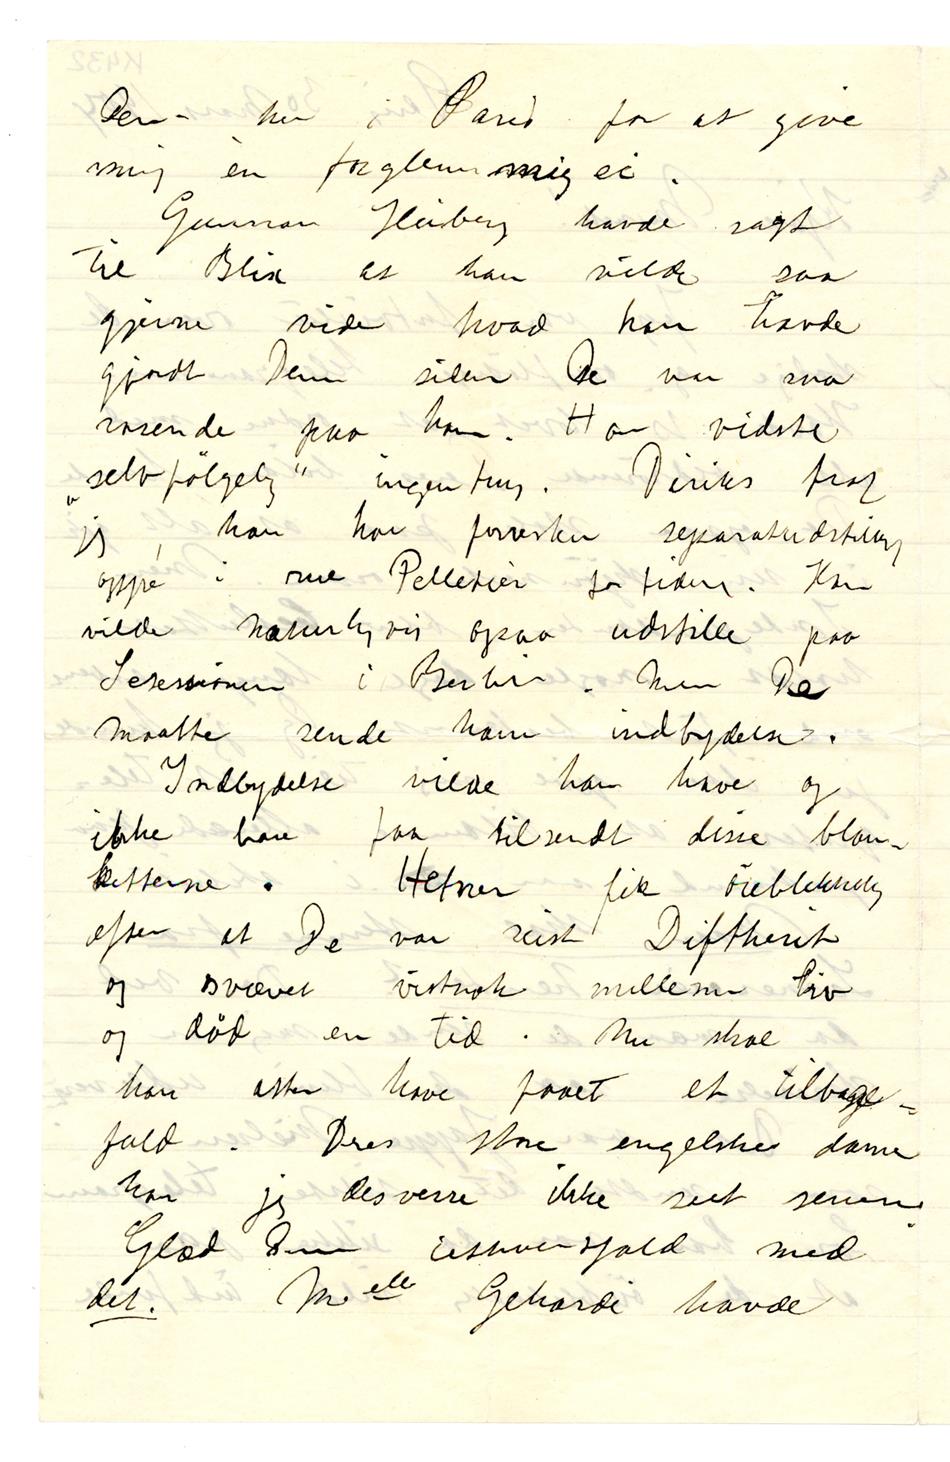 Dem – her i Paris for at give
mig en forglemmigei.
Gunnar Heiberg havde sagt
til Blix at han vilde saa
gjerne vide hvad han havde
gjordt Dem siden De var saa
rasende paa ham. Han vidste
„selvfølgelig“ ingenting. Diriks traf
jeg, han har forresten separatudstilling
oppe i rue Pelletier for tiden. Han
vilde naturligvis ogsaa udstille paa
Secessionen i Berlin. Men De
maatte sende ham indbydelse.
Indbydelse vilde han have og
ikke bare faa tilsendt disse blan-
ketterne. Hetner fik øieblikkelig
efter at De var reist Diftherit
og svævet vistnok mellem liv
og død en tid. Nu skal
han atter have faaet et tilbage-
fald. Deres store engelske dame
har jeg desverre ikke seet senere.
Glæd Dem iethvertfald med
det. Melle Gehardi havde